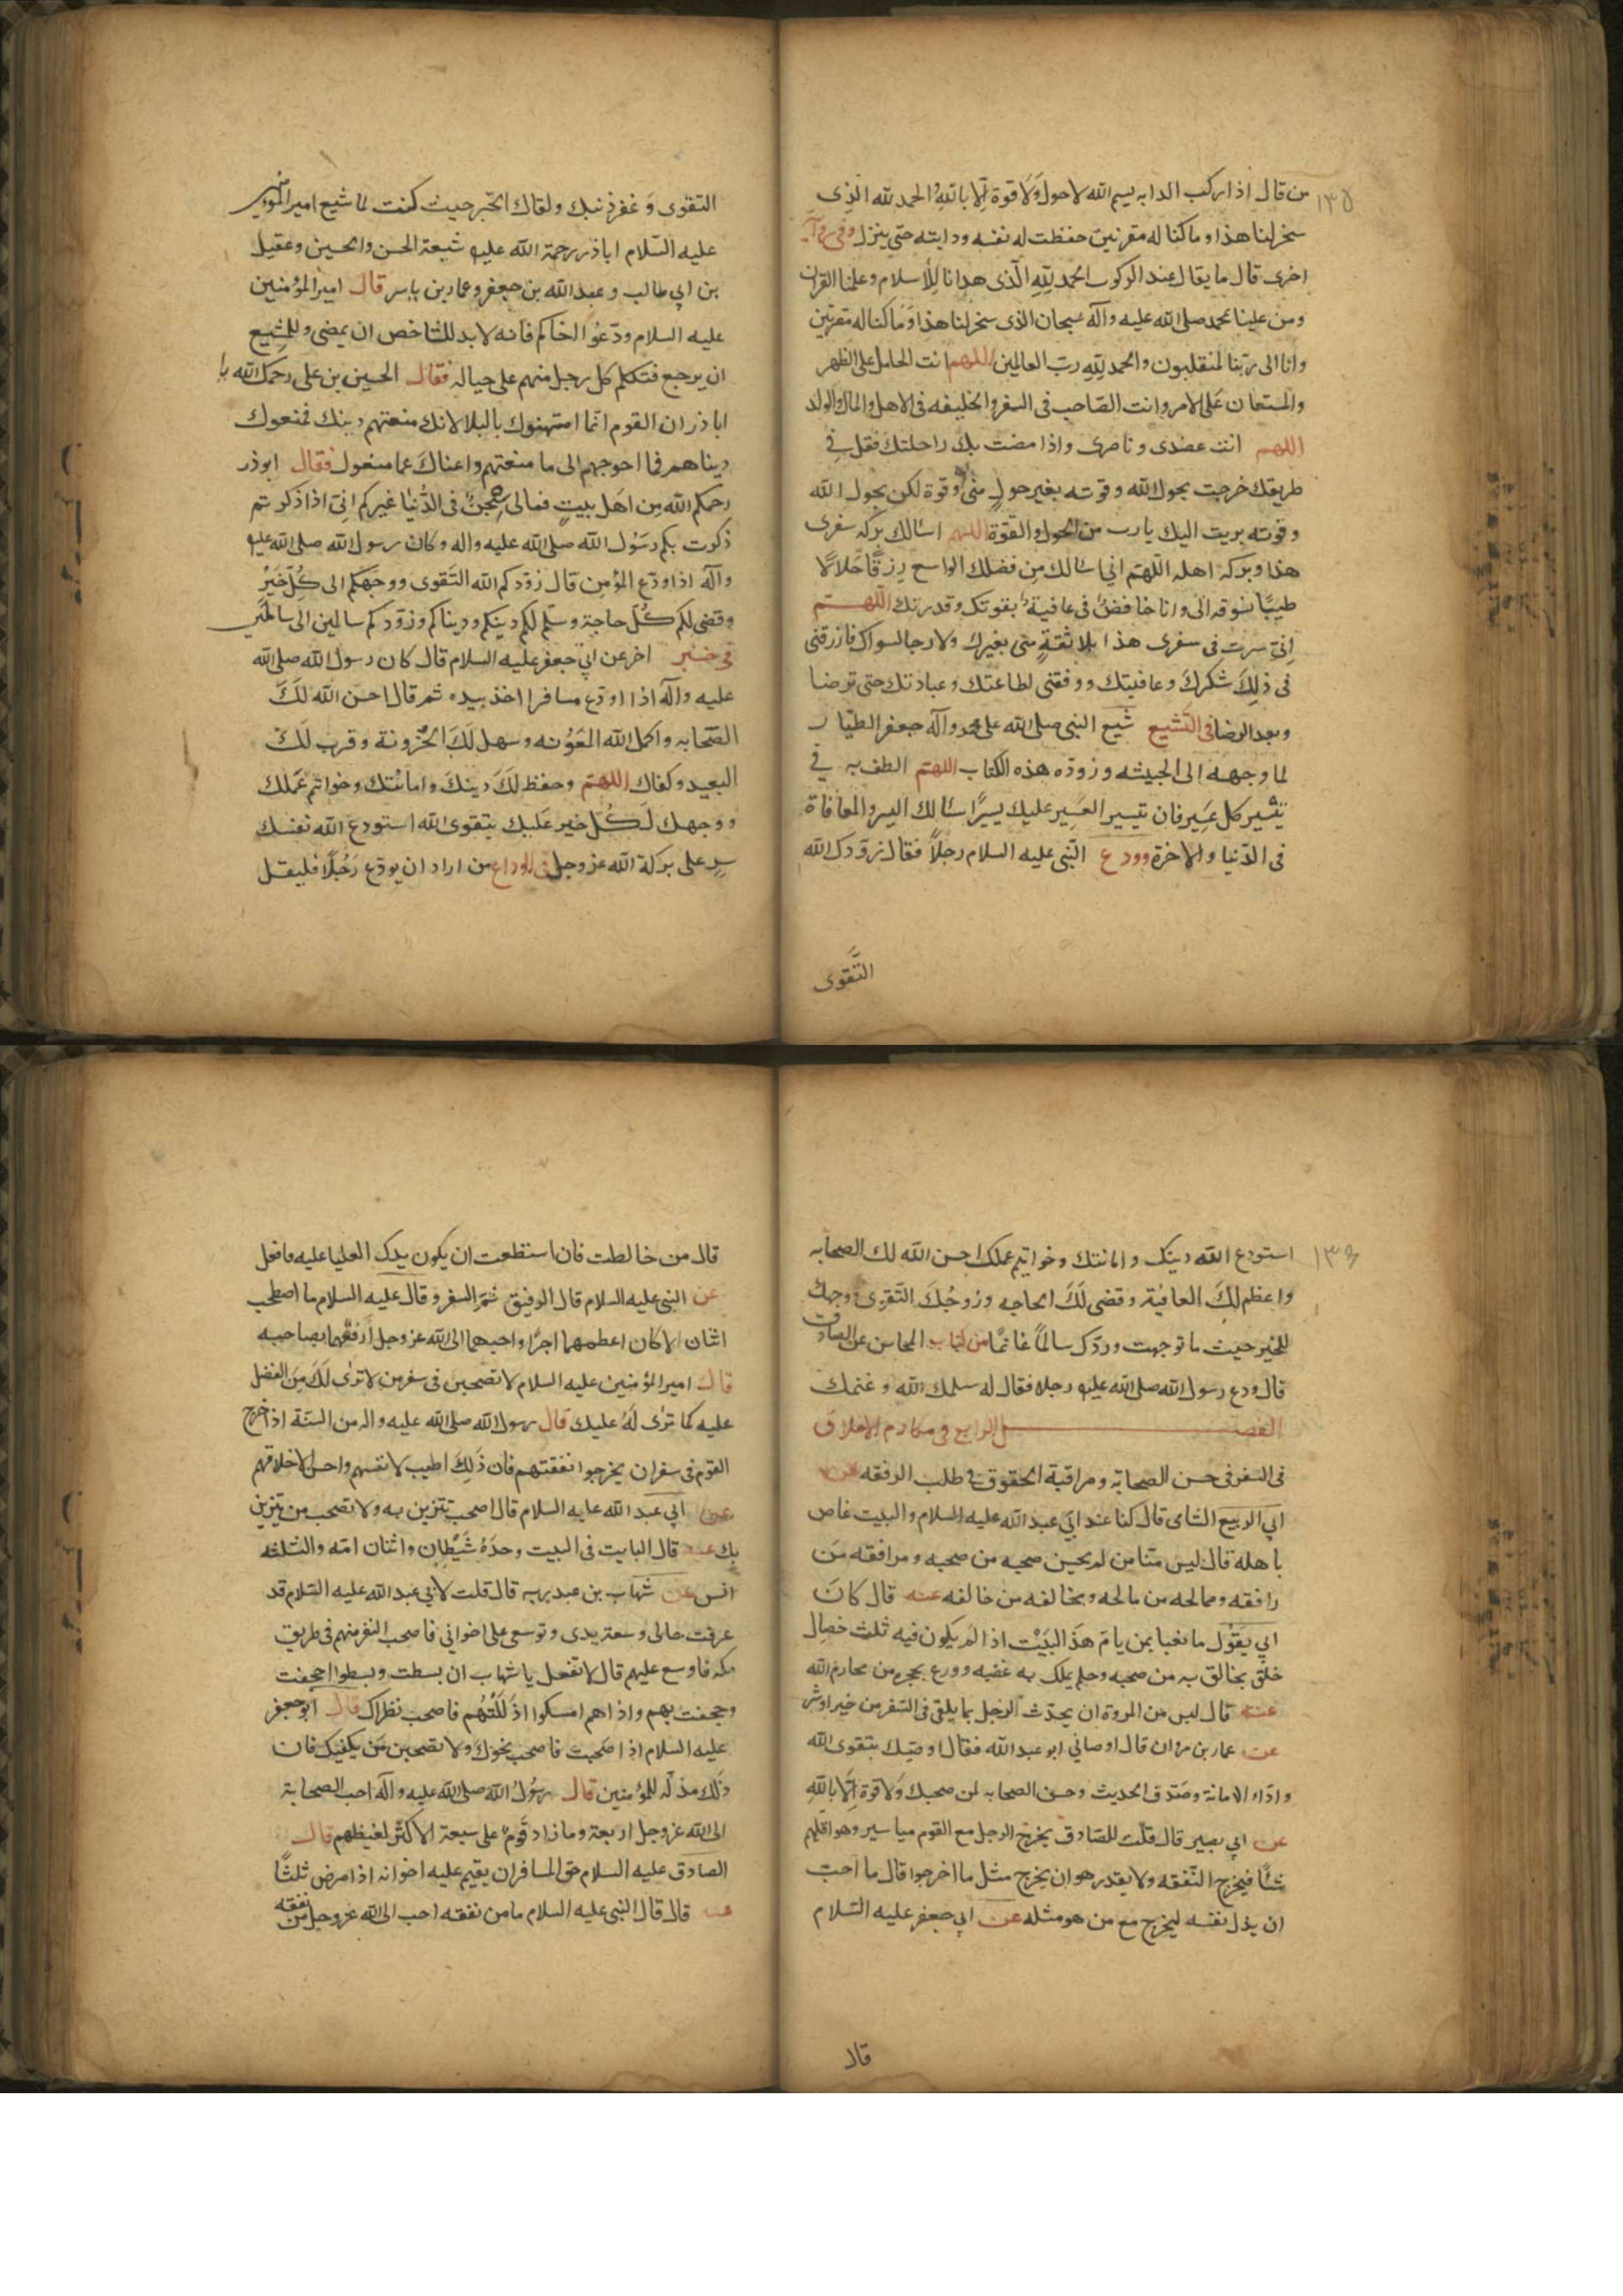 ١٣٥
من قال اذا ركب الدابه بسم الله لا حول ولا قوة الا بالله الحمد لله الذى
سخر لنا هذا وما كنا له مقرنين حفظت له نفسه ودابته حتى ينزل وفى رواية
اخرى قال ما يقال عند الركوب الحمد لله الذى هدانا للاسلام وعلمنا القران
ومن علينا بمحمد صلى الله عليه وآله سبحان الذى سخر لنا هذا وما كنا له مقرنين
وانا الى ربنا لمنقلبون والحمد لله رب العالمين اللهم انت الحامل على الظهر
والمستعان على الامر وانت الصاحب فى السفر والخليفه فى الاهل والمال والولد
اللهم انت عضدى وناصرى واذا مضت بك راحلتك فقل فى
طريقك خرجت بحول الله وقوته بغير حول منى وقوة لكن بحول الله
وقوته بريت اليك يا رب من الحول والقوة اللهم اسالك بركة سفرى
هذا وبركة اهله اللهم انى اسالك من فضلك الواسع رزقا حلالا
طيبا تسوقه الى وانا خافض فى عافية بقوتك وقدرتك اللهم
انى سرت فى سفرى هذا بلا ثقة منى بغيرك ولا رجا لسواك فارزقنى
فى ذلك شكرك وعافيتك ووفقنى لطاعتك وعبادتك حتى ترضا
وبعد الرضا فى التشيع شيع النبى صلى الله على محمد وآله جعفر الطيار
لما وجهه الى الحبشه وزوده هذه الكتاب اللهم الطف به فى
تيسير كل عسير فان تيسير العسير عليك يسيرا سالك اليسر والمعافاة
فى الدنيا والاخرة وودع النبى عليه السلام رجلا فقال زودك الله
التقوى
التقوى وغفر ذنبك ولقاك الخير حيث كنت لما شيع امير المؤمنين
عليه السلام اباذر رحمة الله عليه شيعة الحسن والحسين وعقيل
بن ابى طالب وعبد الله بن جعفر وعمار بن ياسر قال امير المؤمنين
عليه السلام ودعوا اخاكم فانه لابد للشاخص ان يمضى وللمشيع
ان يرجع فتكلم كل رجل منهم على حياله فقال الحسين بن على رحمك الله يا
اباذر ان القوم انما امتهنوك بالبلا لانك منعتهم دينك فمنعوك
دنياهم فما احوجهم الى ما منعتهم واغناك عما منعوك فقال ابوذر
رحمكم الله من اهل بيت فمالى شجن فى الدنيا غيركم انى اذا ذكرتم
ذكرت بكم رسول الله صلى الله عليه واله وكان رسول الله صلى الله عليه
وآله اذا ودع المؤمن قال زودكم الله التقوى ووجهكم الى كل خير
وقضى لكم كل حاجة وسلم لكم دينكم ودنياكم وردكم سالمين الى سالمين
فى خبر اخر عن ابى جعفر عليه السلام قال كان رسول الله صلى الله
عليه وآله اذا اودع مسافرا اخذ بيده ثم قال احسن الله لك
الصحابه واكمل الله المعونه وسهل لك الحزونة وقرب لك
البعيد وكفاك اللهم وحفظ لك دينك وامانتك وخواتم عملك
ووجهك لكل خير عليك بتقوى الله استودع الله نفسك
سر على بركة الله عز وجل فى الوداع من اراد ان يودع رجلا فليقل
١٣٦
استودع الله دينك وامانتك وخواتيم عملك احسن الله لك الصحابه
واعظم لك العافية وقضى لك الحاجه وزودك التقوى ووجهك
للخير حيث ما توجهت وردك سالما غانما من كتاب المحاسن عن الصادق
قال ودع رسول الله صلى الله عليه رجلا فقال له سلمك الله وغنمك
الفصل الرابع فى مكارم الاخلاق
فى السفر فى حسن الصحابة ومراقبة الحقوق فى طلب الرفقه عن
ابى الربيع الشامى قال كنا عند ابى عبد الله عليه السلام والبيت غاص
باهله قال ليس منا من لم يحسن صحبه من صحبه ومرافقه من
رافقه وممالحه من مالحه ومخالفه من خالفه عنه قال كان
ابى يقول ما نعبا بمن يام هذ البيت اذا لم يكون فيه ثلث خصال
خلق يخالق به من صحبه وحلم يملك به غضبه وورع يحجره من محارم الله
عنه قال ليس من المروة ان يحدث الرجل بما يلقى فى السفر من خير او شر
عن عمار بن مروان قال اوصانى ابو عبد الله فقال اوصيك بتقوى الله
واداء الامانة وصدق الحديث وحسن الصحابه لمن صحبك ولا قوة الا بالله
عن ابى بصير قال قلت للصادق يخرج الرجل مع القوم مياسير وهو اقلهم
شئا فيخرج النفقه ولا يقدر هو ان يخرج مثل ما اخرجوا قال ما احب
ان يذل نفسه ليخرج مع من هو مثله عن ابى جعفر عليه السلام
قال
قال من خالطت فان استطعت ان يكون يدك العليا عليه فافعل
عن النبى عليه السلام قال الرفيق ثم السفر وقال عليه السلام ما اصطحب
اثنان الا كان اعظمهما اجرا واحبهما الى الله عز وجل ارفقهما بصاحبه
قال امير المؤمنين عليه السلام لا تصحبن فى سفر من لا ترى لك من الفضل
عليه كما ترى له عليك قال رسول الله صلى الله عليه واله من السنة اذا خرج
القوم فى سفر ان يخرجوا نفقتهم فان ذلك اطيب لانفسهم واحسن لاخلاقهم
عن ابى عبد الله عليه السلام قال اصحب تتزين به ولا تصحب من يتزين
بك عنه قال البايت فى البيت وحده شيطان واثنان امه والثلثه
انس عن شهاب بن عبد ربه قال قلت لابى عبد الله عليه السلام قد
عرفت حالى وسعة يدى وتوسعى على اخوانى فاصحب النفر منهم فى طريق
مكه فاوسع عليهم قال لا تفعل يا شهاب ان بسطت وبسطوا اجحفت
وحجفت بهم واذا هم امسكوا اذللتهم فاصحب نظراك قال ابو جعفر
عليه السلام اذا صحبت فاصحب نحوك ولا تصحبن من يكفيك فان
ذلك مذله للمؤمنين قال رسول الله صلى الله عليه وآله احب الصحابة
الى الله عز وجل اربعة وما زاد قوم على سبعة الا كثر لغيظهم قال
الصادق عليه السلام حق المسافر ان يقيم عليه اخوانه اذا مرض ثلثا
عنه قال قال النبى عليه السلام ما من نفقه احب الى الله عز وجل من نفقه